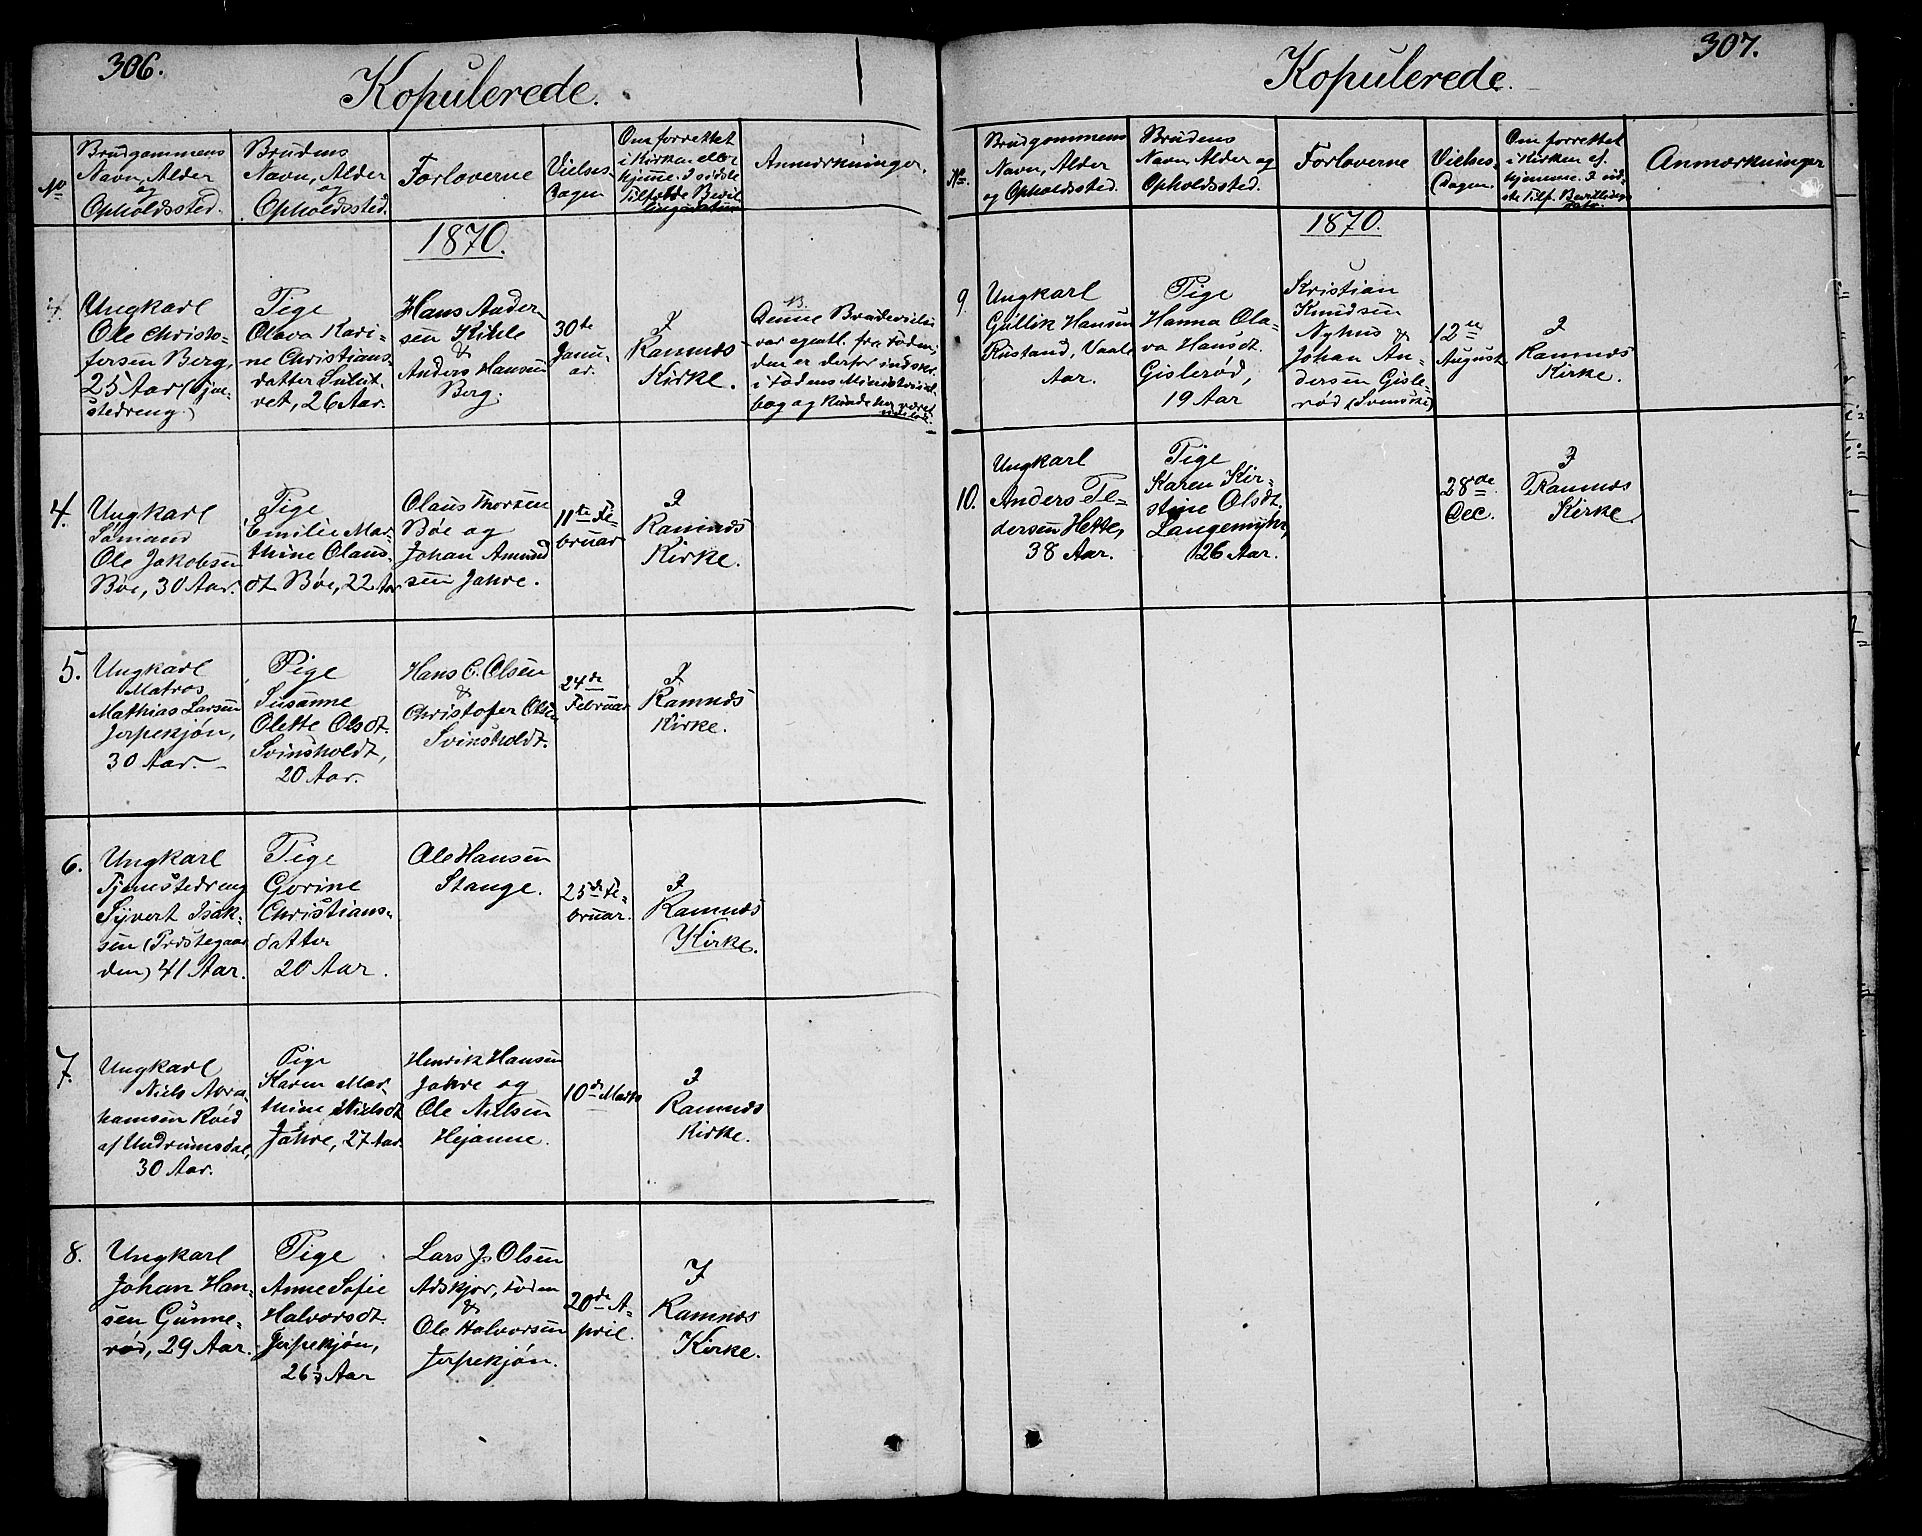 306.
Kopulerede.
No
Brudgommens
Navn, Alder
og
Opholdssted.
Brudens
Navn, Alder
og
Opholdssted.
Forloverne
Vielses
Dagen
Om forrettet
i Kirken eller
hjemme. I sidste
Tilfælde Bevil
lingsdatum
Anmærkninger.
1870.
Ungkarl
Ole Christo-
fersen Berg,
25 Aar (Tjene-
stedreng.)
Pige
Olava Kari-
ne Christians-
datter
26 Aar.
Hans Ander
sen Kihle
&
Anders Hansen
Berg.
30te
Janu-
ar.
I
Ramnæs
Kirke.
NB.
Denne Brudevielse
var egentl. fra Føden,
den er derfor indskr.
i Fødens Ministerial-
bog og kunde her været
udeladt.
4.
Ungkarl
Sømand
Ole Jakobsen
Bøe, 30 Aar.
Pige
Emilie Mar-
thine Olaus-
dt. Bøe, 22 Aar
Olaus Thorsen
Bøe og
Johan Amund
sen Jahre.
11te Fe-
bruar
I
Ramnæs
Kirke.
5.
Ungkarl
Matros
Mathias Larsen
Jerpekjøn,
30 Aar.
Pige
Susanne
Olette Olsdt.
Svinsholdt,
20 Aar.
Hans C. Olsen
&
Christofer Olsen
Svinsholdt.
24de
Februar
I
Ramnæs
Kirke.
6.
Ungkarl
Tjenestedreng
Syvert Isak-
sen (Præstegaar
den) 41 Aar.
Pige
Gorine
Christians-
datter
20 Aar.
Ole Hansen
Stange.
25de Fe-
bruar.
I
Ramnæs
Kirke.
7.
Ungkarl
Niels Abra-
hamsen Røed
af Undrumsdal,
30 Aar.
Pige
Karen Mar-
thine Nielsdt
Jahre, 27 Aar.
Henrik Hansen
Jahre og
Ole Nielsen
Hejanne.
10de Marts
I
Ramnæs
Kirke.
8.
Ungkarl
Johan Han-
sen Gunne-
rød, 29 Aar.
Pige
Anne Sofie
Halvorsdt.
Jerpekjøn,
26 Aar
Lars J. Olsen
Adskjær, Føden
&
Ole Halvorsen
Jerpekjøn.
20de A-
pril.
I
Ramnæs
Kirke.
307.
Kopulerede.
No.
Brudgommens
Navn, Alder
og Opholdssted.
Brudens
Navn, Alder og
Opholdssted.
Forloverne
Vielses
Dagen.
Om forrettet
i Kirken el.
hjemme. I sid-
ste Tilf. Bevillings
Dato.
Anmærkninger
1870.
9
Ungkarl
Gullik Hansen
Rustand, Vaale
Aar.
Pige
Hanna Ola-
va Hansdt.
Gislerød,
19 Aar
Kristian
Knudsen
Nyhus &
Johan An-
dersen Gisle-
rød (Svenske)
12te
August
I
Ramnæs
Kirke.
10.
Ungkarl
Anders Pe-
dersen Hette,
38 Aar.
Pige
Karen Kir-
stine Olsdt.
Langemyhr,
26 Aar.
28de
Dec.
I
Ramnæs
Kirke.